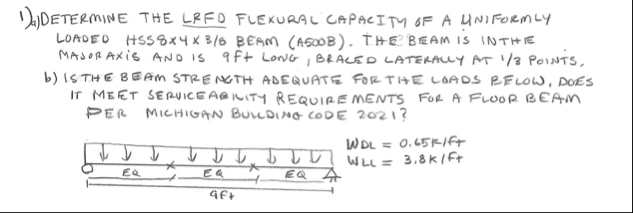 1) a) DETERMINE THE LRFD FLEXURAL CAPACITY OF A UNIFORMLY
LOADED HSS8X4X3/8 BEAM (A500B). THE BEAM IS IN THE
MAJOR AXIS AND IS 9ft LONG, BRACED LATERALLY AT 1/3 POINTS.
b) IS THE BEAM STRENGTH ADEQUATE FOR THE LOADS BELOW, DOES
IT MEET SERVICEABILITY REQUIREMENTS FOR A FLOOR BEAM
PER MICHIGAN BUILDING CODE 2021?
WDL = 0.65K/ft
WLL = 3.8K/ft
EQ EQ EQ
9ft